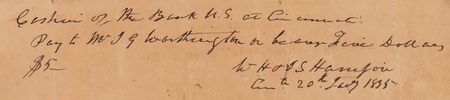 Cashier of the Bank U.S. at Cincinnati
Pay to Mr J G Worthington or bearer Five Dollars
$5 W H & J S Harrison
Cin^ti 20th Jany 1835